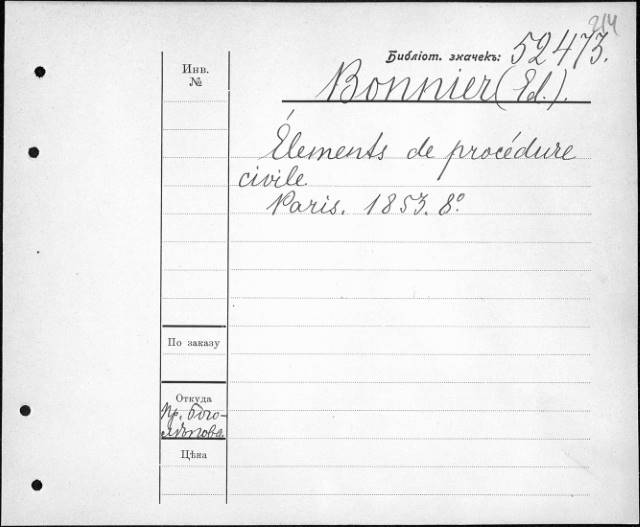 214
Библіот. значекъ: 52473.
Инв.
№
Bonnier (Ed.).
Élements de procédure
civile
Paris. 1853. 8º
По заказу
Откуда
Пр. Бого-
лѣпова.
Цѣна